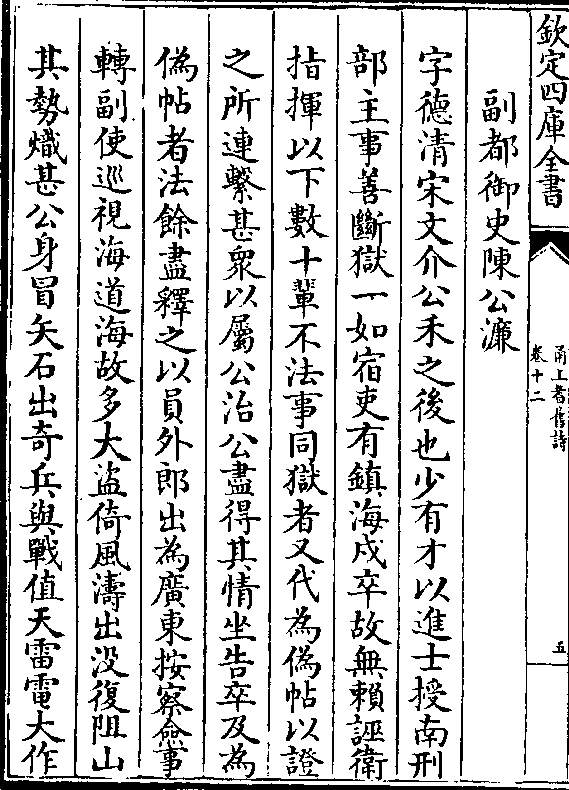 欽定四庫全書
甬上耆舊詩
卷十二
五
副都御史陳公濂
字德清宋文介公禾之後也少有才以進士授南刑
部主事善斷獄一如宿吏有鎮海戍卒故無賴誣衛
指揮以下數十輩不法事同獄者又代為偽帖以證
之所連繫甚衆以屬公治公盡得其情坐告卒及為
偽帖者法餘盡釋之以員外郎出為廣東按察僉事
轉副使巡視海道海故多大盜倚風濤出没復阻山
其勢熾甚公身冒矢石出奇兵與戰值天雷電大作